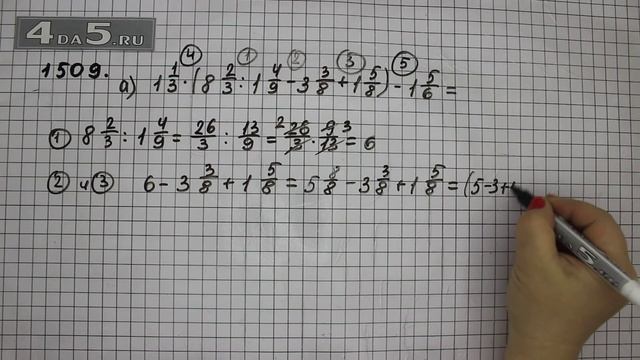 4DA5.RU
④ ① ② ③ ⑤
1509. а) 1 1/3 · (8 2/3 : 1 4/9 - 3 3/8 + 1 5/8) - 1 5/6 =
① 8 2/3 : 1 4/9 = 26/3 : 13/9 = 2 26/3 · 9/13 3 = 6
② и ③ 6 - 3 3/8 + 1 5/8 = 5 8/8 - 3 3/8 + 1 5/8 = (5-3+